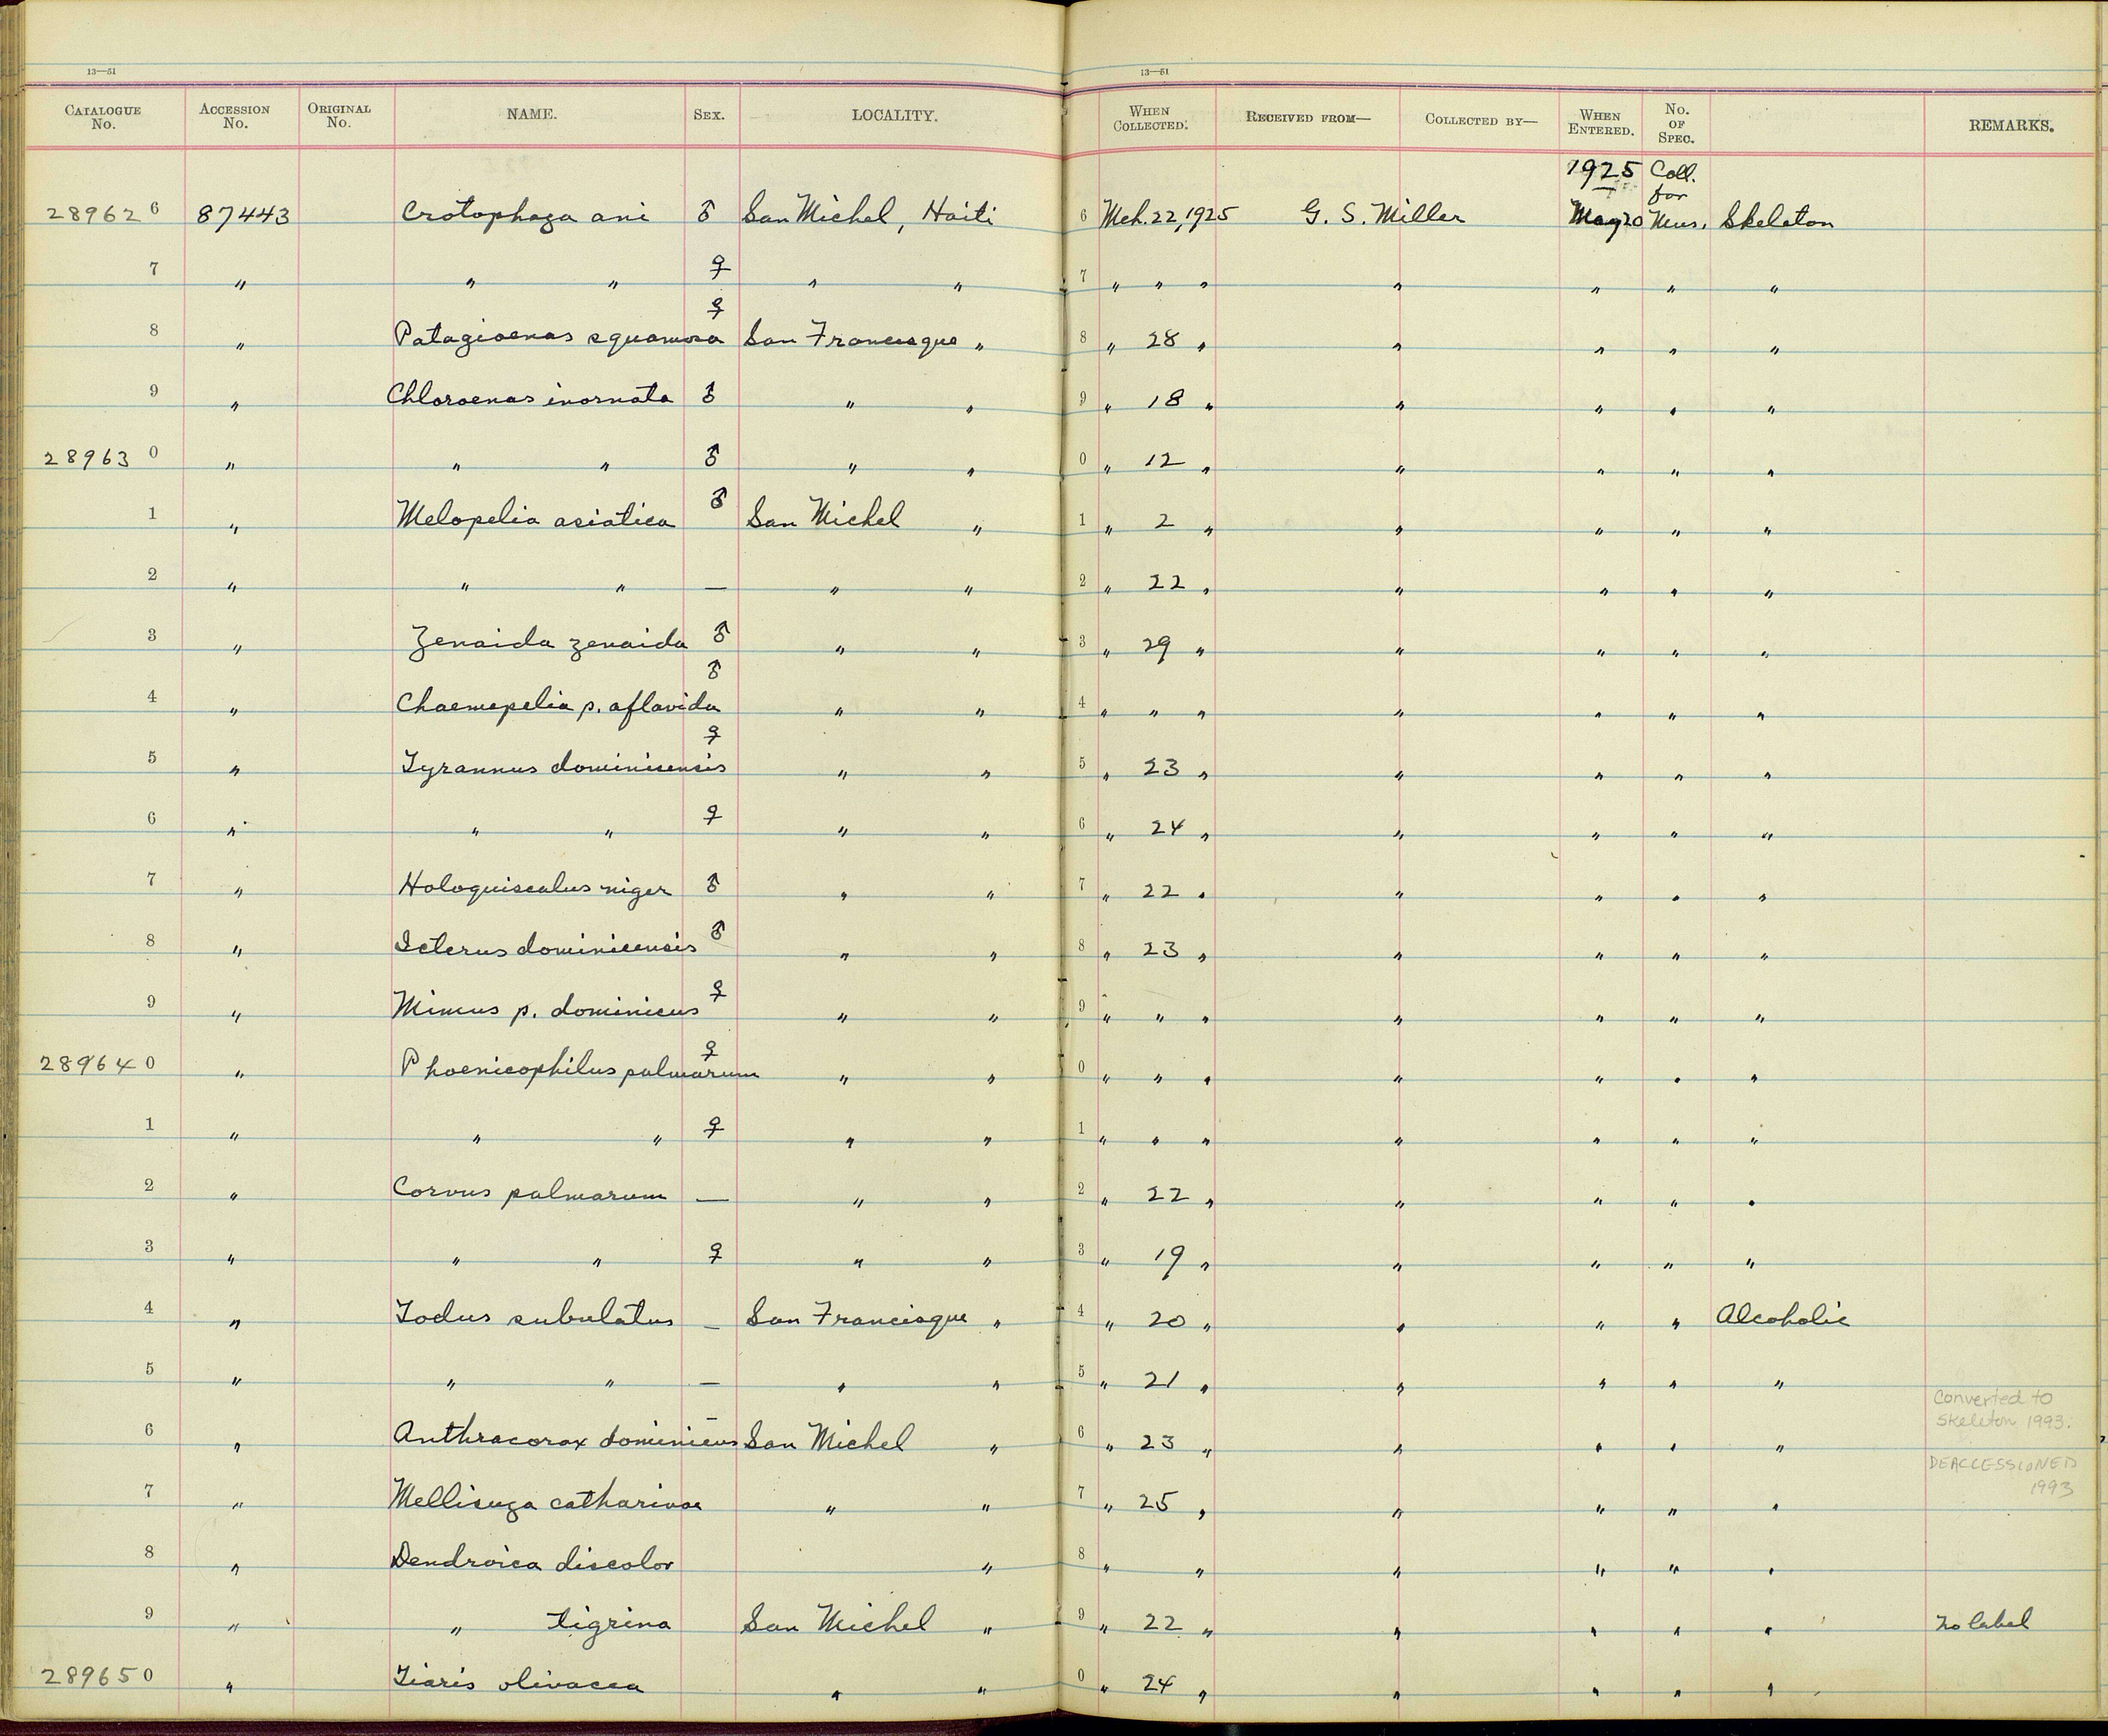 13—51 13—51
CATALOGUE No. ACCESSION No. ORIGINAL No. NAME. SEX. LOCALITY. WHEN COLLECTED. RECEIVED FROM— COLLECTED BY— WHEN ENTERED. No. OF SPEC. REMARKS.
28962 6 87443 Crotophaga ani ♂ San Michel, Haiti 6 Mch. 22, 1925 G. S. Miller 1925 May 20 Coll. for Mus. Skeleton
7 " " " ♀ " " 7 " " " " " " "
8 " Patagioenas squamosa ♀ San Francisque " 8 " 28 " " " " "
9 " Chloroenas inornata ♂ " " 9 " 18 " " " " "
28963 0 " " " ♂ " " 0 " 12 " " " " "
1 " Melopelia asiatica ♂ San Michel " 1 " 2 " " " " "
2 " " " — " " 2 " 22 " " " " "
3 " Zenaida zenaida ♂ " " 3 " 29 " " " " "
4 " Chaemepelia p. aflavida ♂ " " 4 " " " " " " "
5 " Tyrannus dominicensis ♀ " " 5 " 23 " " " " "
6 " " " ♀ " " 6 " 24 " " " " "
7 " Holoquiscalus niger ♂ " " 7 " 22 " " " " "
8 " Icterus dominicensis ♂ " " 8 " 23 " " " " "
9 " Mimus p. dominicus ♀ " " 9 " " " " " " "
28964 0 " Phoenicophilus palmarum ♀ " " 0 " " " " " " "
1 " " " ♀ " " 1 " " " " " " "
2 " Corvus palmarum — " " 2 " 22 " " " " "
3 " " " ♀ " " 3 " 19 " " " " "
4 " Todus subulatus — San Francisque " 4 " 20 " " " " Alcoholic
5 " " " — " " 5 " 21 " " " " "
6 " Anthracorax dominicus — San Michel " 6 " 23 " " " " " Converted to skeleton 1993.
7 " Mellisuga catharinae " " 7 " 25 " " " " " DEACCESSIONED 1993
8 " Dendroica discolor " 8 " " " " " "
9 " " tigrina San Michel " 9 " 22 " " " " " No label
28965 0 " Tiaris olivacea " " 0 " 24 " " " " "